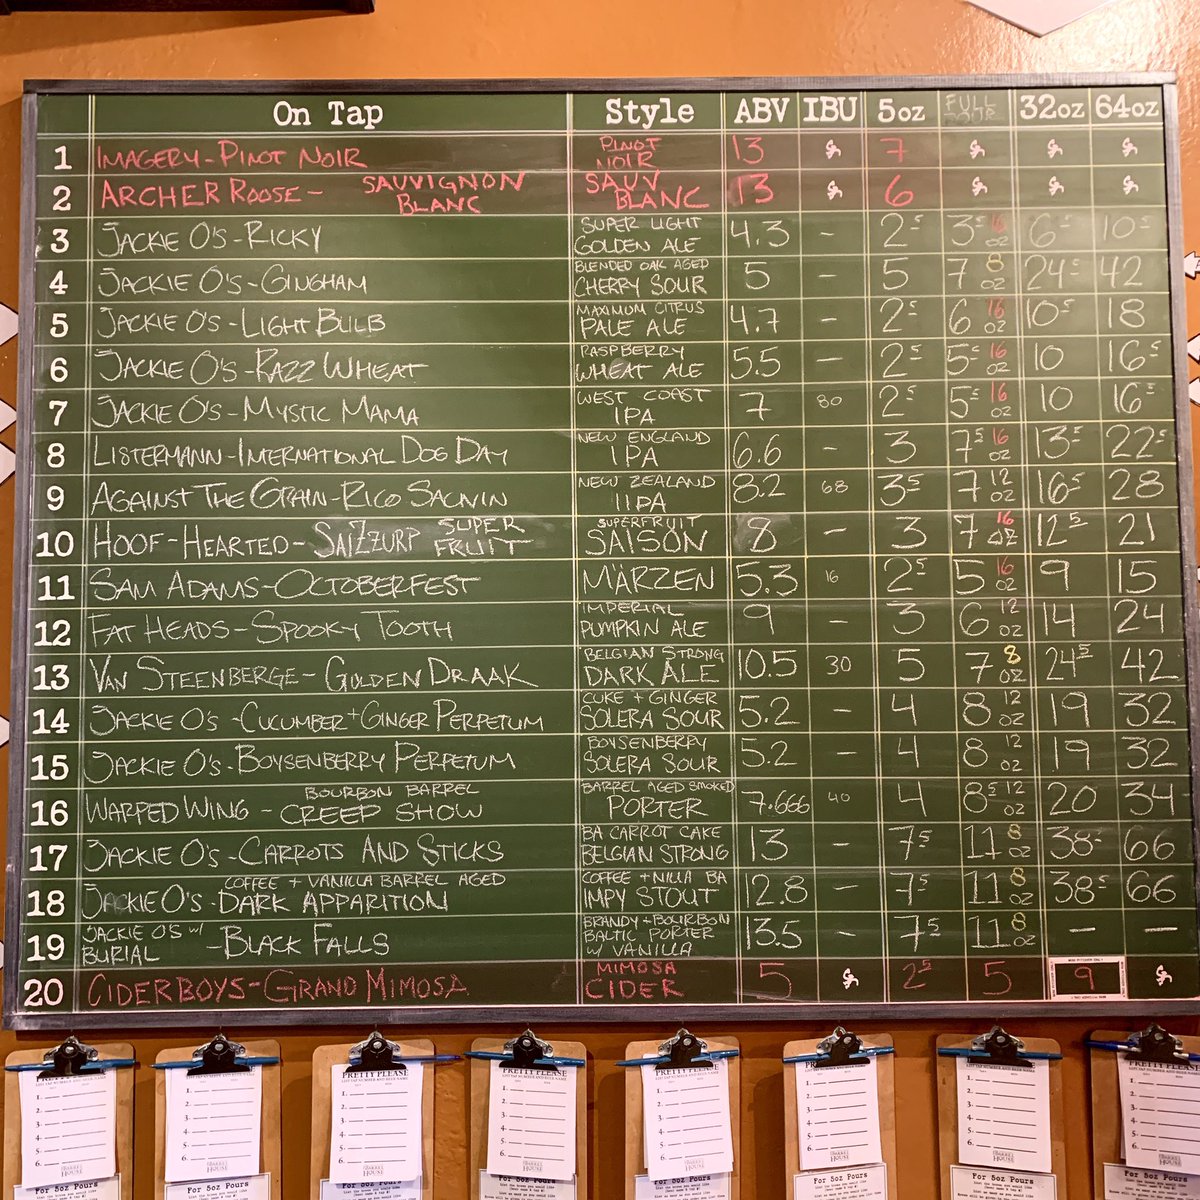 On Tap Style ABV IBU 5oz FULL POUR 32oz 64oz
1 IMAGERY - PINOT NOIR PINOT NOIR 13 7
2 ARCHER ROOSE - SAUVIGNON BLANC SAUV BLANC 13 6
3 JACKIE O'S - RICKY SUPER LIGHT GOLDEN ALE 4.3 - 2.5 3.5 16 OZ 6.5 10.5
4 JACKIE O'S - GINGHAM BLENDED OAK AGED CHERRY SOUR 5 - 5 7 8 OZ 24.5 42
5 JACKIE O'S - LIGHT BULB MAXIMUM CITRUS PALE ALE 4.7 - 2.5 6 16 OZ 10.5 18
6 JACKIE O'S - RAZZ WHEAT RASPBERRY WHEAT ALE 5.5 - 2.5 5.5 16 OZ 10 16.5
7 JACKIE O'S - MYSTIC MAMA WEST COAST IPA 7 80 2.5 5.5 16 OZ 10 16.5
8 LISTERMANN - INTERNATIONAL DOG DAY NEW ENGLAND IPA 6.6 - 3 7.5 16 OZ 13.5 22.5
9 AGAINST THE GRAIN - RICO SAUVIN NEW ZEALAND IIPA 8.2 68 3.5 7 12 OZ 16.5 28
10 HOOF-HEARTED - SAIZZURP SUPER FRUIT SUPERFRUIT SAISON 8 - 3 7 16 OZ 12.5 21
11 SAM ADAMS - OCTOBERFEST MÄRZEN 5.3 16 2.5 5 16 OZ 9 15
12 FAT HEADS - SPOOKY TOOTH IMPERIAL PUMPKIN ALE 9 - 3 6 12 OZ 14 24
13 VAN STEENBERGE - GULDEN DRAAK BELGIAN STRONG DARK ALE 10.5 30 5 7 8 OZ 24.5 42
14 JACKIE O'S - CUCUMBER + GINGER PERPETUM CUKE + GINGER SOLERA SOUR 5.2 - 4 8 12 OZ 19 32
15 JACKIE O'S - BOYSENBERRY PERPETUM BOYSENBERRY SOLERA SOUR 5.2 - 4 8 12 OZ 19 32
16 WARPED WING - BOURBON BARREL CREEP SHOW BARREL AGED SMOKED PORTER 7.666 40 4 8.5 12 OZ 20 34
17 JACKIE O'S - CARROTS AND STICKS BA CARROT CAKE BELGIAN STRONG 13 - 7.5 11 8 OZ 38.5 66
18 JACKIE O'S - COFFEE + VANILLA BARREL AGED DARK APPARITION COFFEE + NILLA BA IMPY STOUT 12.8 - 7.5 11 8 OZ 38.5 66
19 JACKIE O'S W/ BURIAL - BLACK FALLS BRANDY + BOURBON BALTIC PORTER W/ VANILLA 13.5 - 7.5 11 8 OZ - -
20 CIDERBOYS - GRAND MIMOSA MIMOSA CIDER 5 2.5 5 9
PRETTY PLEASE
LIST TAP NUMBER AND BEER NAME
1.
2.
3.
4.
5.
6.
BARREL HOUSE
For 5oz Pours